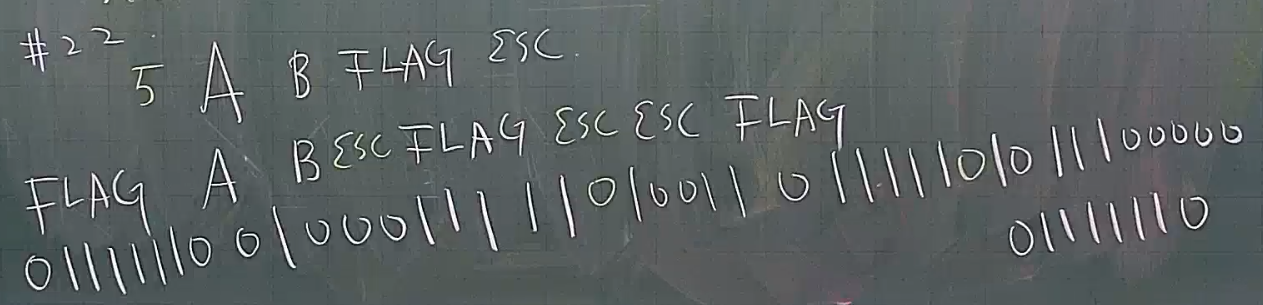 #22.
5 A B FLAG ESC.
FLAG A B ESC FLAG ESC ESC FLAG
01111110 01000111 1101001101111101011100000
01111110